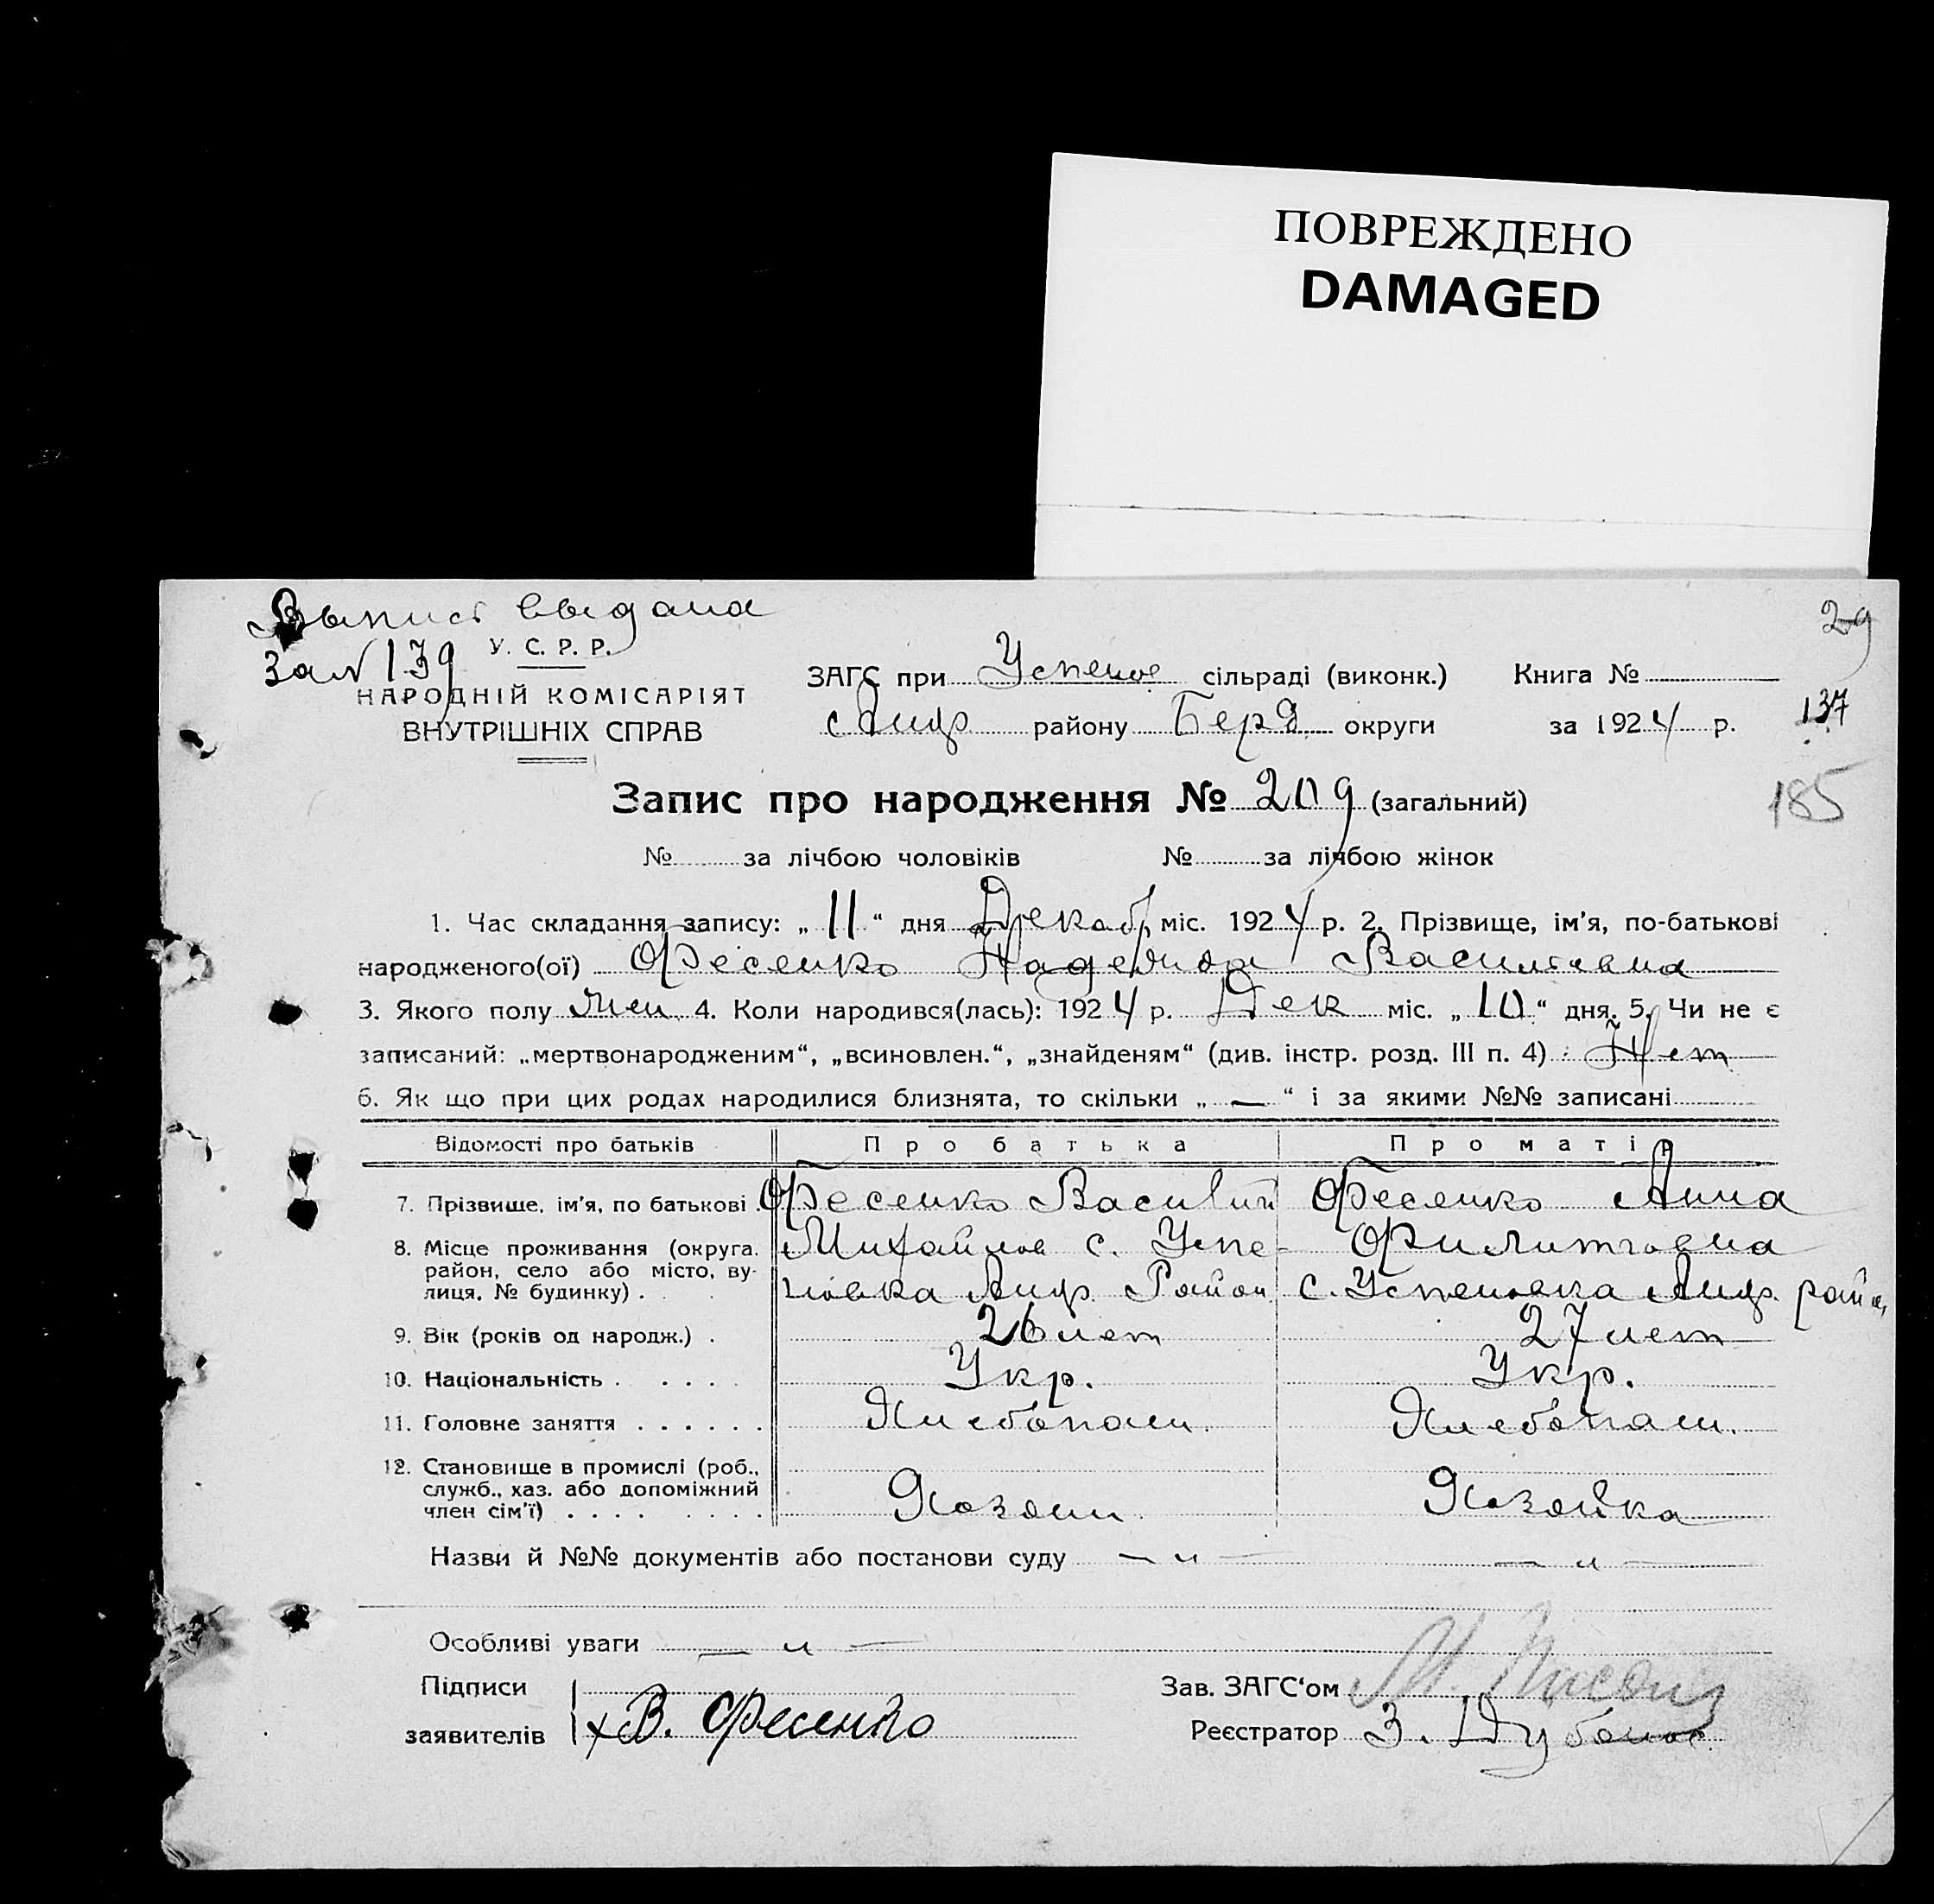 ПОВРЕЖДЕНО
DAMAGED
Выпись выдана
за № 139
29
У. С. Р. Р.
НАРОДНІЙ КОМІСАРІЯТ
ВНУТРІШНІХ СПРАВ
ЗАГС при Успенов сільраді (виконк.) Книга №
району Берд. округи за 1924 р.
137
Запис про народження № 209 (загальний)
185
№ за лічбою чоловіків № за лічбою жінок
1. Час складання запису: „ 11 “ дня Декаб міс. 1924 р. 2. Прізвище, ім'я, по-батькові
народженого(ої) Фесенко Надежда Васильевна
3. Якого полу Жен. 4. Коли народився(лась): 1924 р. Дек міс. „ 10 “ дня. 5. Чи не є
записаний: „мертвонародженим“, „всиновлен.“, „знайденям“ (див. інстр. розд. III п. 4) : Нет
6. Як що при цих родах народилися близнята, то скільки „ — “ і за якими №№ записані
Відомості про батьків Про батька Про матір
7. Прізвише, ім'я, по батькові . Фесенко Василий Фесенко Анна
8. Місце проживання (округа. Михайлов с. Успе- Филиповна
район, село або місто, ву- новка Район с. Успеновка район
лиця. № будинку) .
9. Вік (років од народж.) . 26 лет 27 лет
10. Національність . . . . . Укр. Укр.
11. Головне заняття . . . . . . Хлебопаш. Хлебопаш.
12. Становище в промислі (роб.,
служб., хаз. або допоміжний Хозяин Хозяйка
член сім'ї) . . . . . . . .
Назви й №№ документів або постанови суду — „ — — „ —
Особливі уваги — „ —
Підписи
заявителів В. Фесенко
Зав. ЗАГС‘ом
Реєстратор З.